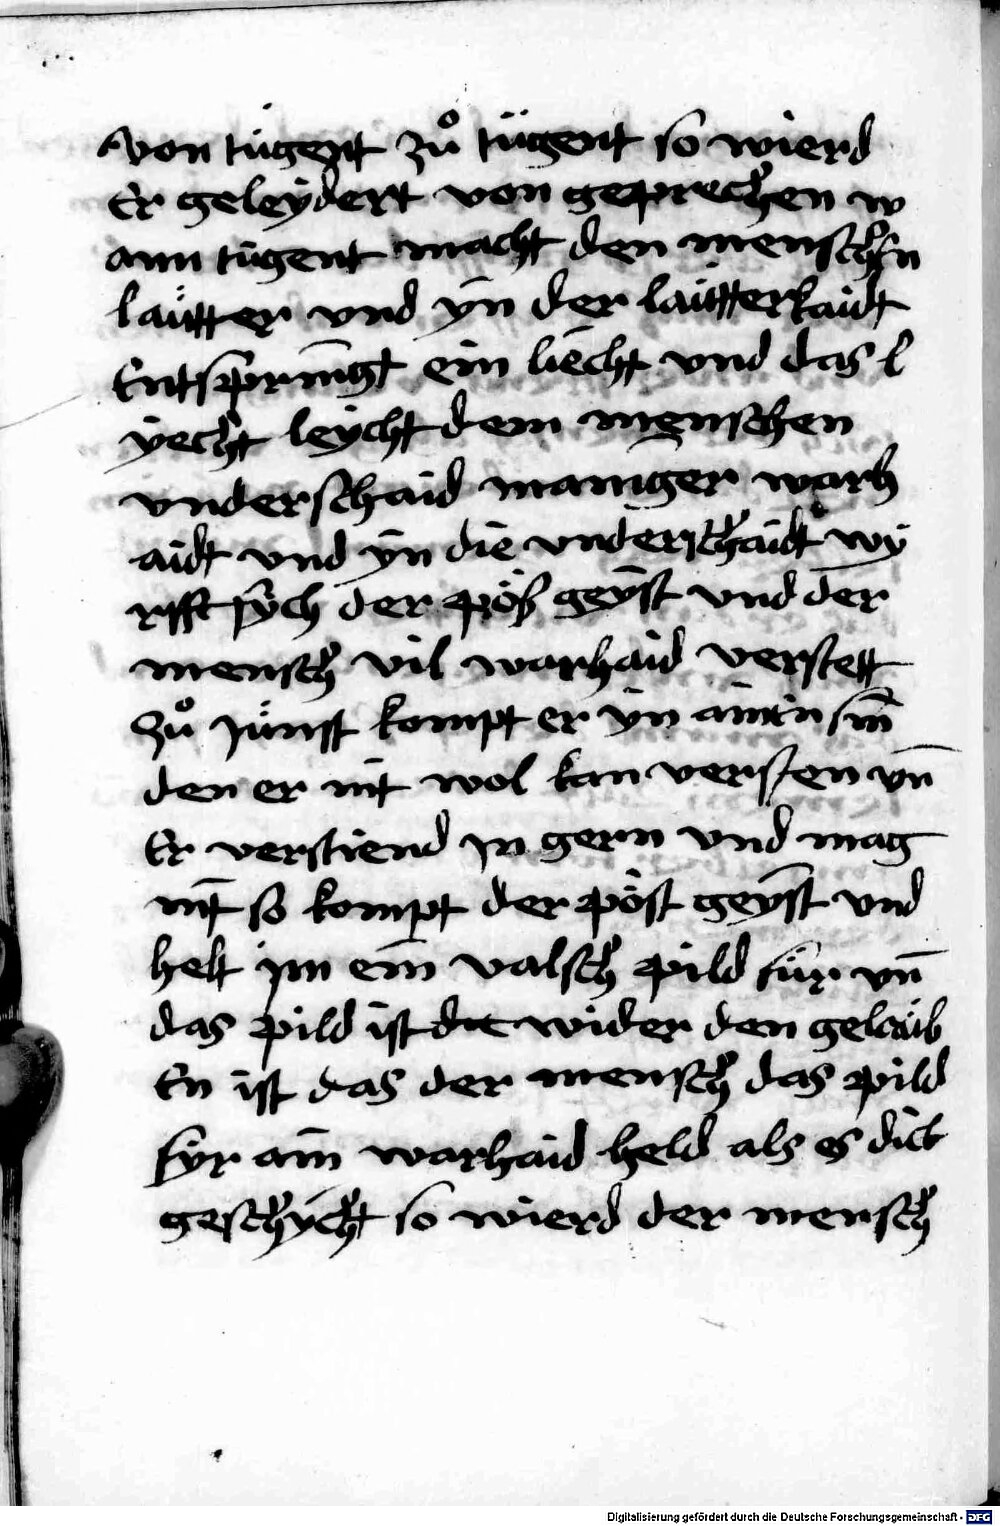 von tugent zů tügent so wierd
Er geleydert von geprechen w
ann tugent macht den menschen
lautter vnd yn der lautterkaidt
Entspringt ein liecht vnd das l
yecht leycht dem menschen
vnderschaid maniger warh
aidt vnd yn die vnderschaidt wy
rfft sych der pöß geyst vnd der
mensch vil warhaid verstett
zů Junst kompt er yn ainen sin
den er nit wol kan versten vn̄
Er verstiend in gern vnd mag
nit so kompt der pöst geyst vnd
helt im ein valsch pild für vn̄
das pild ist dic wider den gelaub
En ist das der mensch das pild
fyr ain warhaid held als es dick
geschycht so wierd der mensch
Digitalisierung gefördert durch die Deutsche Forschungsgemeinschaft - DFG